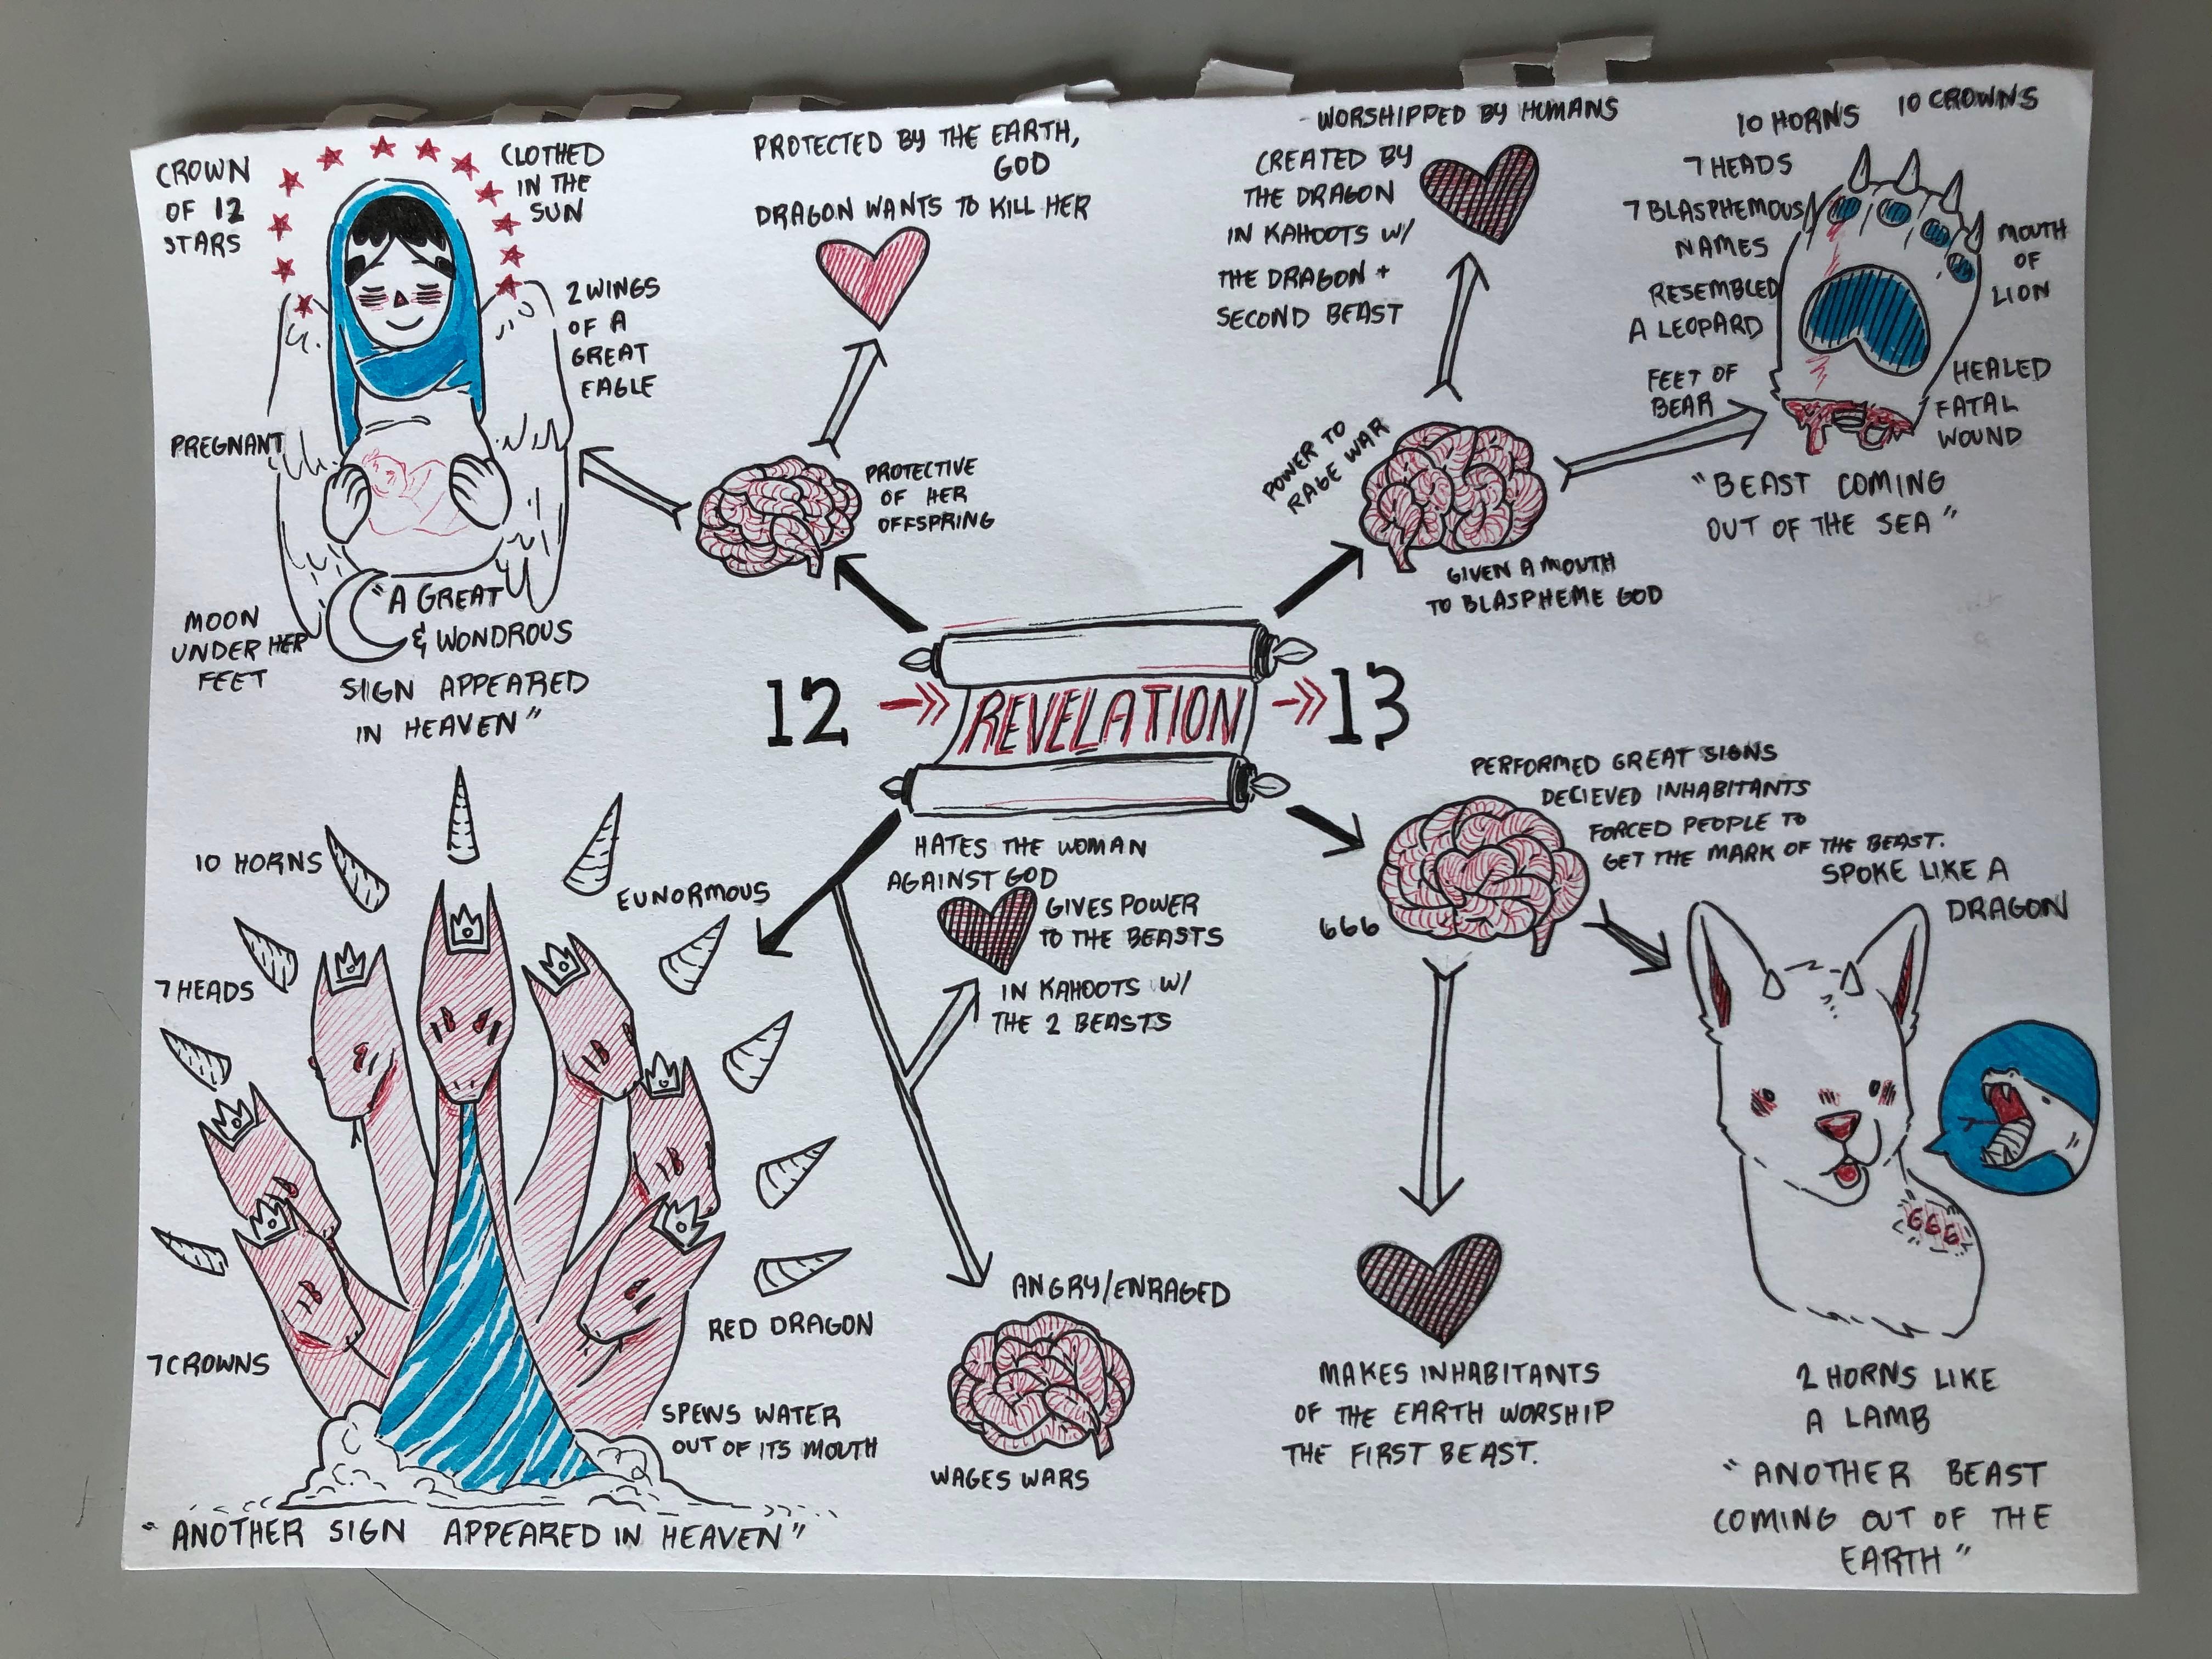 CROWN
OF 12
STARS
CLOTHED
IN THE
SUN
2 WINGS
OF A
GREAT
EAGLE
PREGNANT
MOON
UNDER HER
FEET
"A GREAT
& WONDROUS
SIGN APPEARED
IN HEAVEN"
PROTECTED BY THE EARTH,
GOD
DRAGON WANTS TO KILL HER
PROTECTIVE
OF HER
OFFSPRING
WORSHIPPED BY HUMANS
CREATED BY
THE DRAGON
IN KAHOOTS W/
THE DRAGON +
SECOND BEAST
POWER TO
RAGE WAR
GIVEN A MOUTH
TO BLASPHEME GOD
10 HORNS
10 CROWNS
7 HEADS
7 BLASPHEMOUS
NAMES
RESEMBLED
A LEOPARD
FEET OF
BEAR
MOUTH
OF
LION
HEALED
FATAL
WOUND
"BEAST COMING
OUT OF THE SEA"
12
REVELATION
13
10 HORNS
EUNORMOUS
7 HEADS
7 CROWNS
RED DRAGON
SPEWS WATER
OUT OF ITS MOUTH
"ANOTHER SIGN APPEARED IN HEAVEN"
HATES THE WOMAN
AGAINST GOD
GIVES POWER
TO THE BEASTS
IN KAHOOTS W/
THE 2 BEASTS
ANGRY/ENRAGED
WAGES WARS
PERFORMED GREAT SIGNS
DECIEVED INHABITANTS
FORCED PEOPLE TO
GET THE MARK OF THE BEAST.
SPOKE LIKE A
DRAGON
666
666
MAKES INHABITANTS
OF THE EARTH WORSHIP
THE FIRST BEAST.
2 HORNS LIKE
A LAMB
"ANOTHER BEAST
COMING OUT OF THE
EARTH"